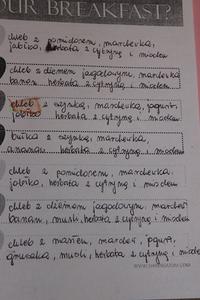 OUR BREAKFAST?
chleb z pomidorem, marchewka,
jabłko, herbata z cytryną i miodem
chleb z dżemem jagodowym, marchewka
banan herbata z cytryną i miodem
chleb z szynką, marchewka, jogurt,
jabłko herbata z cytryną i miodem
bułka z szynką, marchewka,
ananas herbata z cytryną i miodem
chleb z pomidorem, marchewka,
jabłko, herbata z cytryną i miodem
chleb z dżemem jagodowym,
banan, musli, herbata z cytryną i miodem
chleb z masłem,
gruszka, musli, herbata z cytryną i miodem